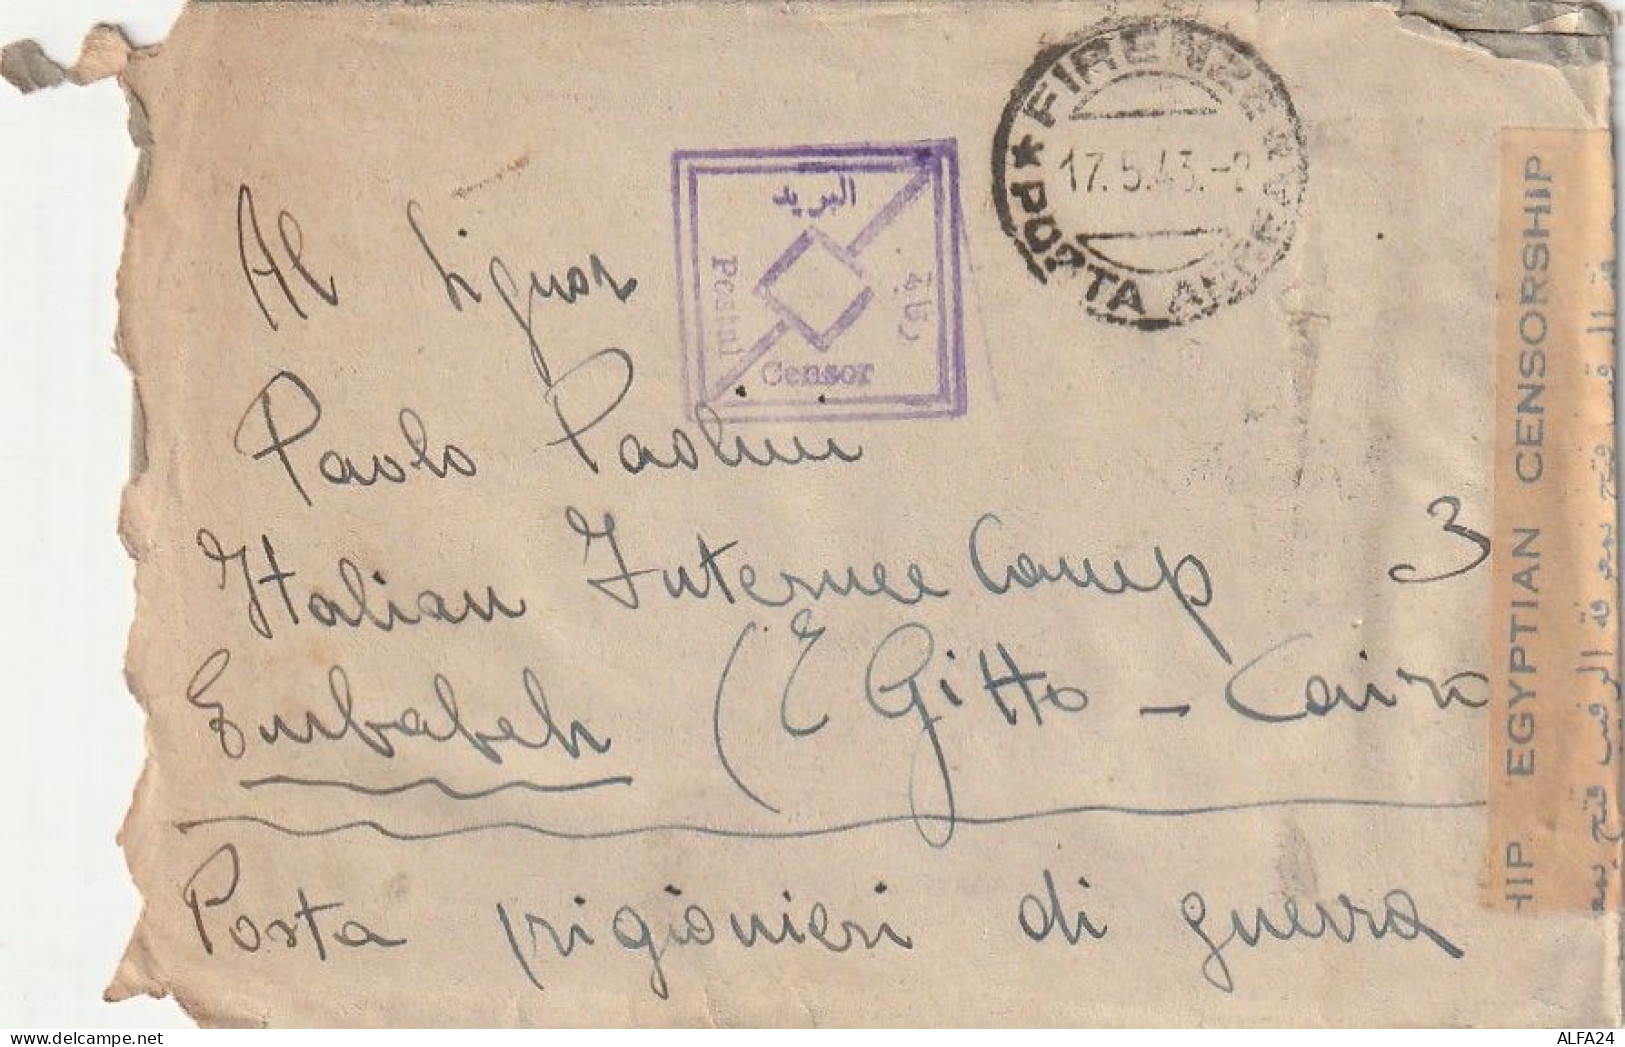 FIRENZE
17.5.43.-2
* PORTA
البريد
Postal
Censor
Al Signor
Paolo Paolini
Italian Internee Camp 3
Embabeh (EGitto - Cairo
Posta prigionieri di guerra
HIP EGYPTIAN CENSORSHIP
ALFA24